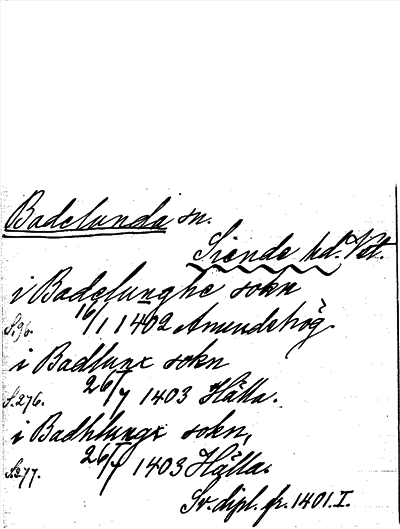 Badelunda sn.
Siende hd. Vst.
i Badelunghe sokn
S. 96. 16/1 1402 Amundshög.
i Badlunx sokn
S. 276. 26/7 1403 Hälla.
i Badhlungx sokn,
S. 277. 26/7 1403 Hälla.
Sv. dipl. fr. 1401. I.